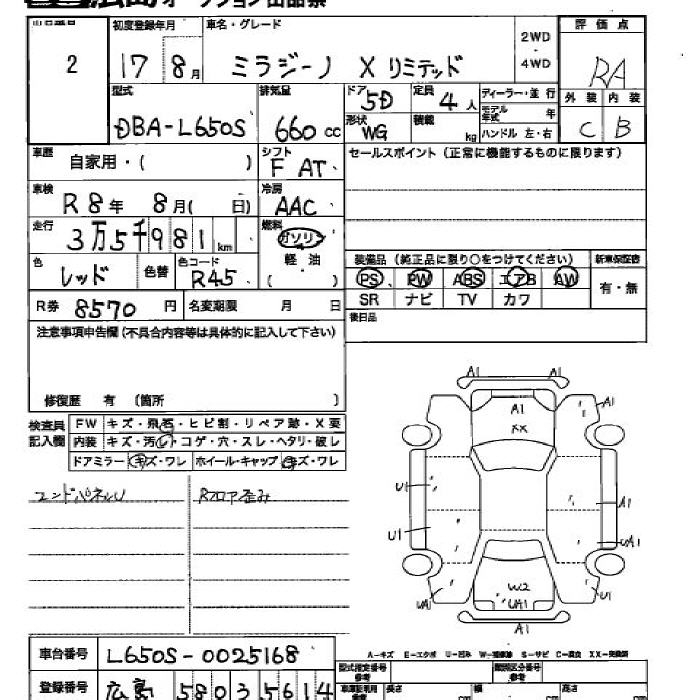 オークション出品票
2
初度登録年月 17 8月
車名・グレード ミラジーノ X リミテッド
2WD・4WD
評価点 RA
外装 C 内装 B
型式 DBA-L650S
排気量 660 cc
ドア 5D
定員 4人
形状 WG
積載 kg
ディーラー・並行
モデル年式 年
ハンドル 左・右
車歴 自家用・( )
シフト F AT
セールスポイント (正常に機能するものに限ります)
車検 R8年 8月( 日)
冷房 AAC
走行 3万5千981km
燃料 ガソリン 軽・油 ( )
色 レッド 色替
色コード R45
装備品 (純正品に限り○をつけてください)
新車保証書 有・無
PS PW ABS エアB AW
SR ナビ TV カワ
後日品
R券 8570円
名変期限 月 日
注意事項申告欄(不具合内容等は具体的に記入して下さい)
修復歴 有 (箇所 )
検査員記入欄
FW キズ・飛石・ヒビ割・リペア跡・X要
内装 キズ・汚レ・コゲ・穴・スレ・ヘタリ・破レ
ドアミラー キズ・ワレ ホイール・キャップ キズ・ワレ
エンドパネルU
Rフロア歪み
A1 A1
A1 A1
XX
U1 A1
U1 UA1
W2
UA1 UA1 U1
A1
A-キズ E-エクボ U-凹み W-補修跡 S-サビ C-腐食 XX-交換済
車台番号 L650S-0025168
登録番号 広島 580 35614
型式指定番号 類別区分番号
長さ cm 幅 cm 高さ cm